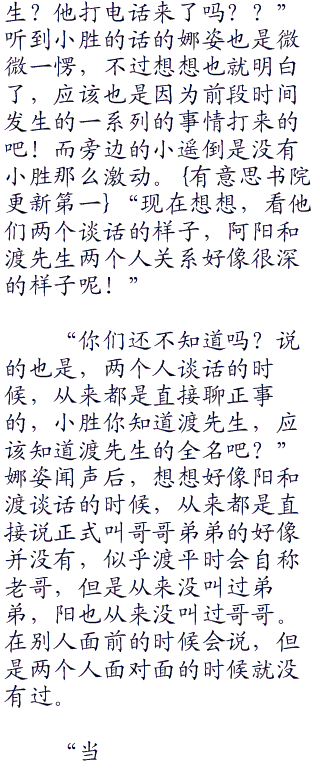 生？他打电话来了吗？？”
听到小胜的话的娜姿也是微
微一愣，不过想想也就明白
了，应该也是因为前段时间
发生的一系列的事情打来的
吧！而旁边的小遥倒是没有
小胜那么激动。{有意思书院
更新第一}“现在想想，看他
们两个谈话的样子，阿阳和
渡先生两个人关系好像很深
的样子呢！”
“你们还不知道吗？说
的也是，两个人谈话的时
候，从来都是直接聊正事
的，小胜你知道渡先生，应
该知道渡先生的全名吧？”
娜姿闻声后，想想好像阳和
渡谈话的时候，从来都是直
接说正式叫哥哥弟弟的好像
并没有，似乎渡平时会自称
老哥，但是从来没叫过弟
弟，阳也从来没叫过哥哥。
在别人面前的时候会说，但
是两个人面对面的时候就没
有过。
“当